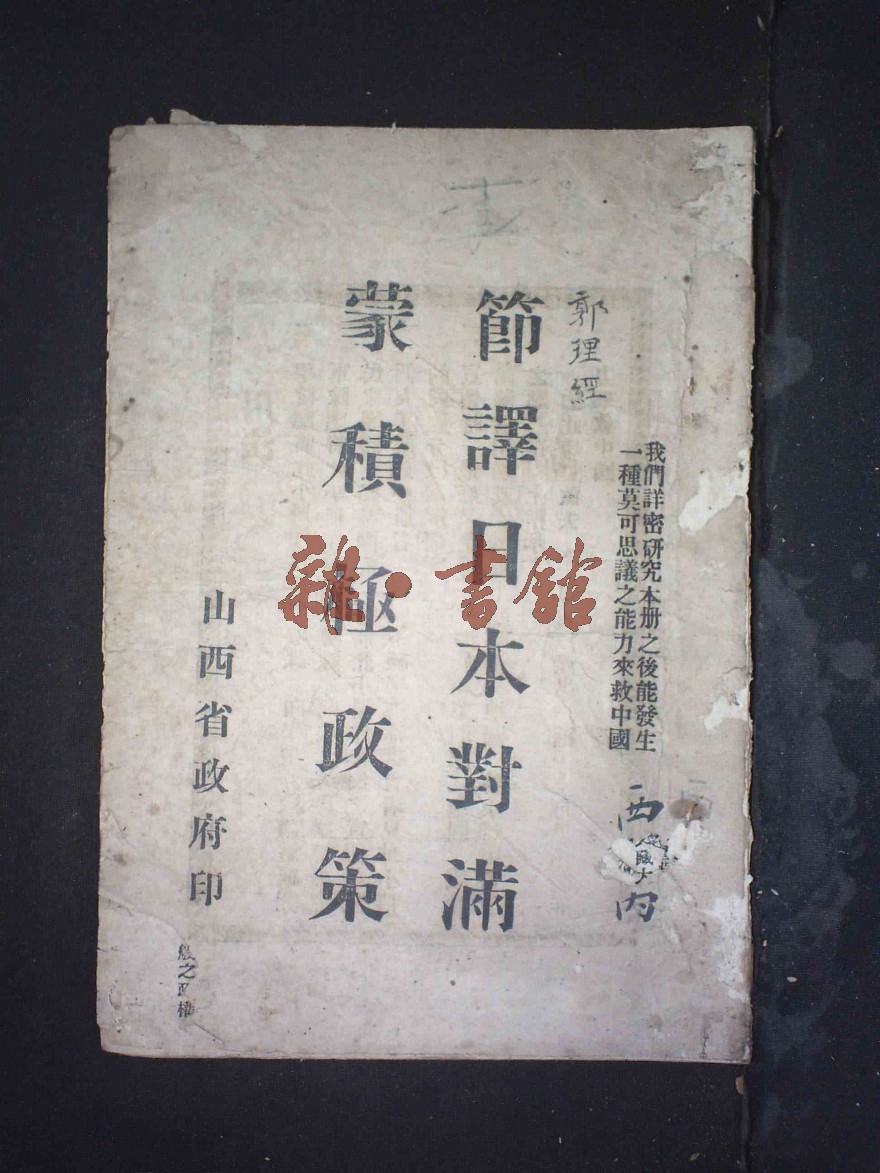 我們詳密研究本册之後能發生
一種莫可思議之能力來救中國
郭理經
節譯日本對滿
蒙積極政策
山西省政府印
雜·書舘
西
内